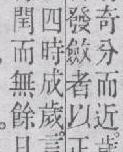 奇分而近歲
發斂者以正
四時成歲。言
閏而無餘日